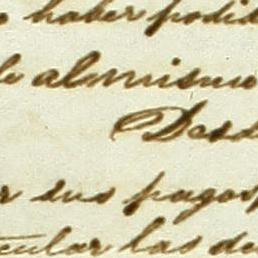 o haber podid
le almismo
Desd
r sus pagos
icular las de